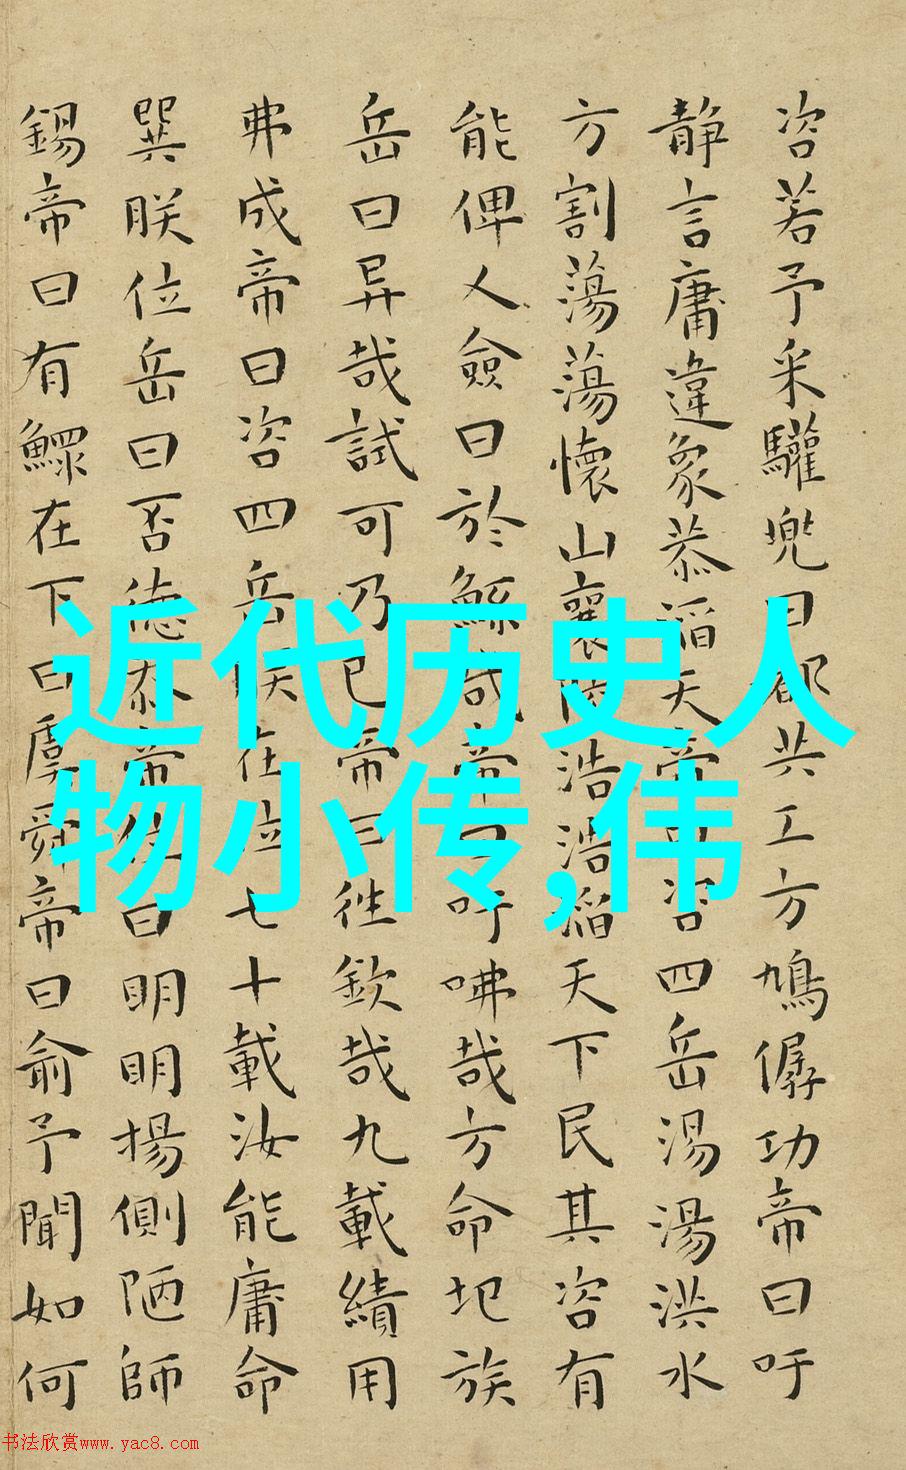 咨若予采驩兜曰都共工方鳩僝功帝曰吁
静言庸違象恭滔天帝曰咨四岳湯湯洪水
方割蕩蕩懷山襄陵浩浩滔天下民其咨有
能俾乂僉曰於鯀哉帝曰吁咈哉方命圮族
岳曰异哉試可乃已帝曰往欽哉九載績用
弗成帝曰咨四岳朕在位七十載汝能庸命
巽朕位岳曰否德忝帝位曰明明揚側陋師
錫帝曰有鰥在下曰虞舜帝曰俞予聞如何
近代历史人
物小传,伟
书法欣赏www.yac8.com